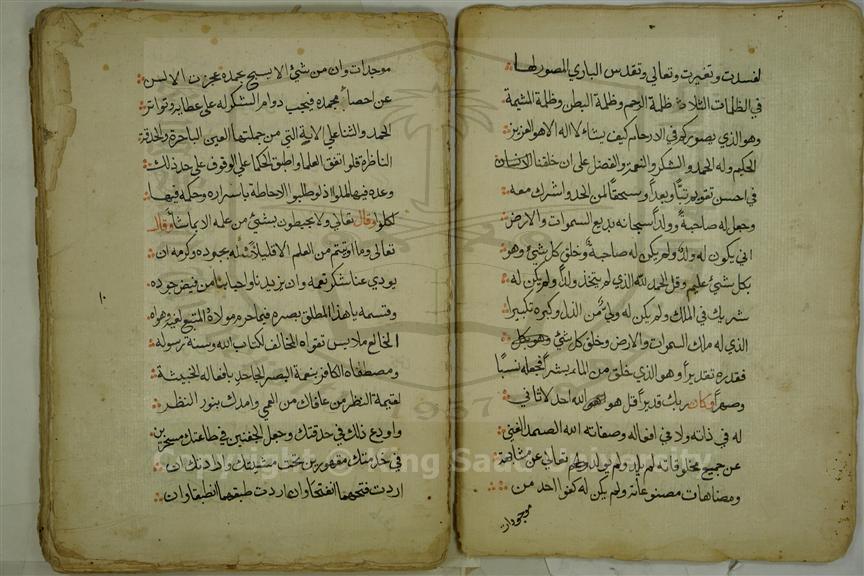 لفسدت وتغيرت وتعالى وتقدس الباري المصور لها
في الظلمات الثلاث ظلمة الرحم وظلمة البطن وظلمة المشيمة
وهو الذي يصوركم في الارحام كيف يشاء لا اله الا هو العزيز
الحكيم وله الحمد والشكر والفضل على ان خلقنا الانسان
في احسن تقويم تبا وبعدا وسحقا لمن الحد واشرك معه
وجعل له صاحبة وولدا سبحانه بديع السموات والارض
انى يكون له ولد ولم يكن له صاحبة وخلق كل شيء وهو
بكل شيء عليم وقل الحمد لله الذي لم يتخذ ولدا ولم يكن له
شريك في الملك ولم يكن له ولي من الذل وكبره تكبيرا
الذي له ملك السموات والارض وخلق كل شيء وهو بكل
فقدره تقديرا وهو الذي خلق من الماء بشرا فجعله نسبا
وصهرا وكان ربك قديرا قل هو الله احد لا ثاني
له في ذاته ولا في افعاله وصفاته الله الصمد الغني
عن جميع مخلوقاته لم يلد ولم يولد تعالى عن مشابهة
ومضاهات مصنوعاته ولم يكن له كفوا احد من
موجودات
موجدات وان من شيء الا يسبح بحمده عجزت الالسن
عن احصاء محمده فيجب دوام الشكر له على عطايه وتواتر
الحمد والثنا على الاية التي من جملتها العين الباصرة والحدقة
الناظرة فلو اتفق العلما واطبق الحكما على الوقوف على حد ذلك
وعده فيها لملوا اذ لو طلبوا الاحاطة باسراره وحكمه فيها
لكلوا وقال تعالى ولا يحيطون بشيء من علمه الا بما شاء وقال
تعالى وما اوتيتم من العلم الا قليلا بجوده وكرمه ان
يودي عنا شكر نعمه وان يزيدنا من فيض جوده
وقسمه يا هذا المطلق بصره فيما حره مولاه المتبع لغيه وهواه
الخالع ملابس تقواه المخالف لكتاب الله وسنة رسوله
ومصطفاه الكافر بنعمة البصر الجاحد بافعاله الخبيثة
لقيمة النظر من عافاك من العمى وامدك بنور النظر
واودع ذلك في حدقتك وجعل الجفنين في طاعتك مسخرين
في خدمتك مقهورين تحت مشيئتك وارادتك ان
اردت فتحهما انفتحا وان اردت طبقهما انطبقا وان
١٠
Copyright © King Saud University
1957